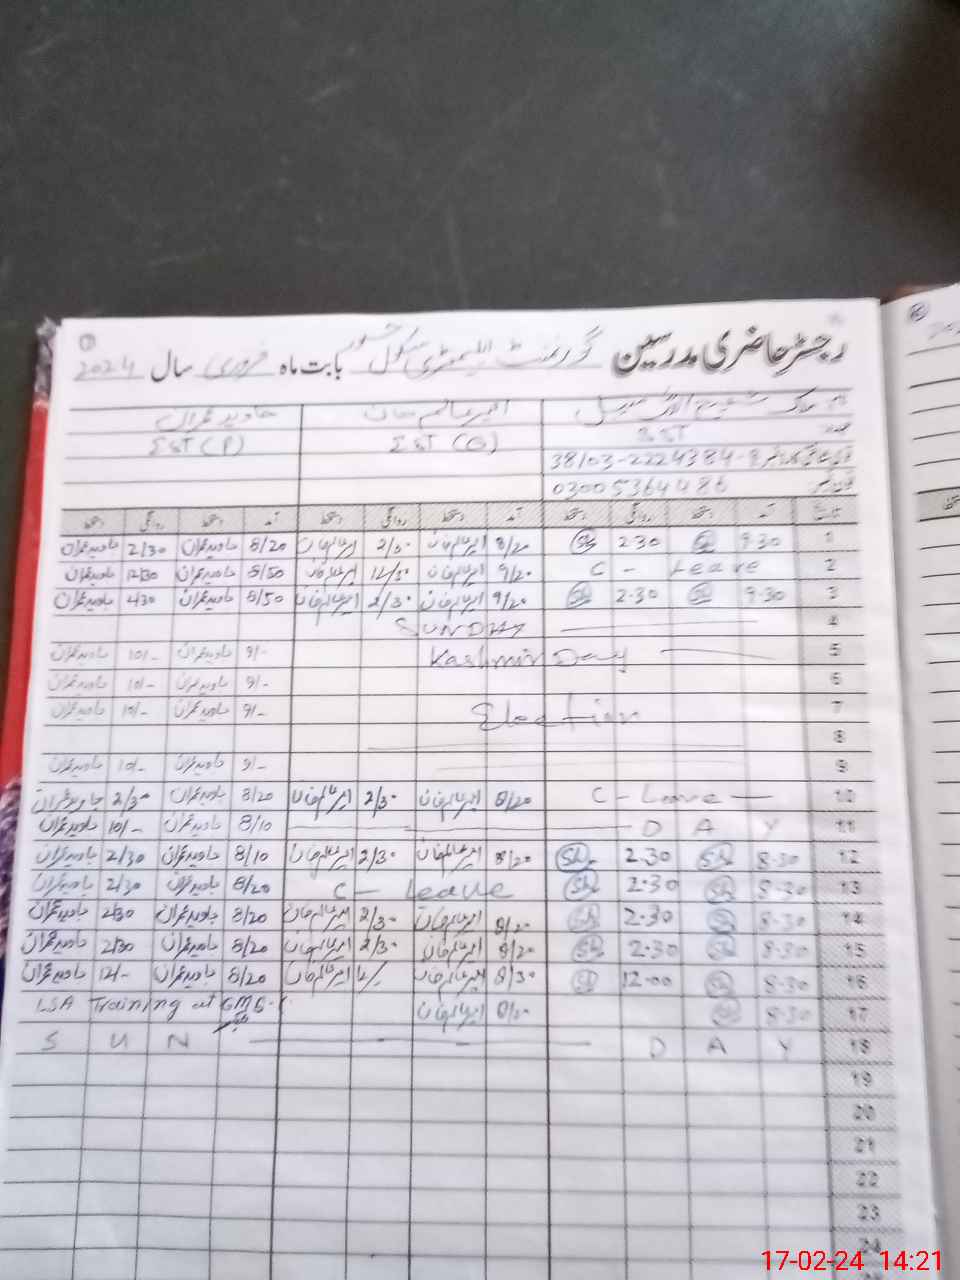 رجسٹر حاضری مدرسین گورنمنٹ ایلیمنٹری سکول بابت ماہ فروری سال 2024
امیر عالم خان جاوید عمران
SST EST (G) EST (P)
38103-2224384-9
03005364486
1 9-30 2-30 8/20 امیر عالم خان 2/30 امیر عالم خان 8/20 جاوید عمران 2/30 جاوید عمران
2 C - Leave 9/20 امیر عالم خان 12/30 8/50 جاوید عمران 12/30 جاوید عمران
3 9-30 2-30 9/20 امیر عالم خان 2/30 امیر عالم خان 8/50 جاوید عمران 2/30 جاوید عمران
4 SUNDAY
5 Kashmir Day 9/- جاوید عمران 10/- جاوید عمران
6 9/- جاوید عمران 10/- جاوید عمران
7 Election 9/- جاوید عمران 10/- جاوید عمران
8
9 9/- جاوید عمران 10/- جاوید عمران
10 C - Leave 8/20 امیر عالم خان 2/30 امیر عالم خان 8/20 جاوید عمران 2/30 جاوید عمران
11 D A Y 8/10 جاوید عمران 10/- جاوید عمران
12 8-30 2-30 8/20 امیر عالم خان 2/30 امیر عالم خان 8/10 جاوید عمران 2/30 جاوید عمران
13 8-30 2-30 C - Leave 8/20 جاوید عمران 2/30 جاوید عمران
14 8-30 2-30 8/20 امیر عالم خان 2/30 امیر عالم خان 8/20 جاوید عمران 2/30 جاوید عمران
15 8-30 2-30 8/20 امیر عالم خان 2/30 امیر عالم خان 8/20 جاوید عمران 2/30 جاوید عمران
16 8-30 12-00 8/30 امیر عالم خان 12/- امیر عالم خان 8/20 جاوید عمران 12/- جاوید عمران
17 8-30 امیر عالم خان LSA Training at
18 S U N D A Y
19
20
21
22
23
24
17-02-24 14:21